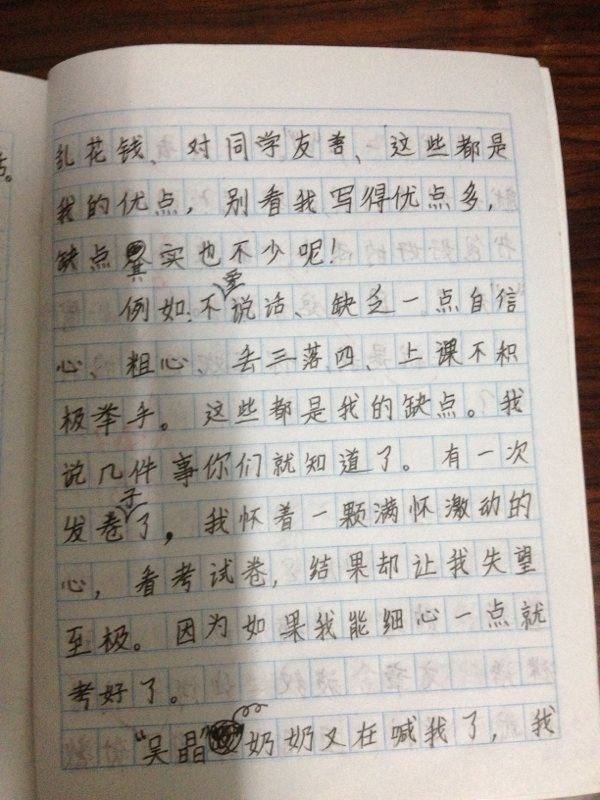 乱花钱、对同学友善、这些都是
我的优点，别看我写得优点多，
缺点其实也不少呢！
例如：不爱说话、缺乏一点自信
心、粗心、丢三落四、上课不积
极举手。这些都是我的缺点。我
说几件事你们就知道了。有一次
发卷子了，我怀着一颗满怀激动的
心，看考试卷，结果却让我失望
至极。因为如果我能细心一点就
考好了。
“吴晶”奶奶又在喊我了，我